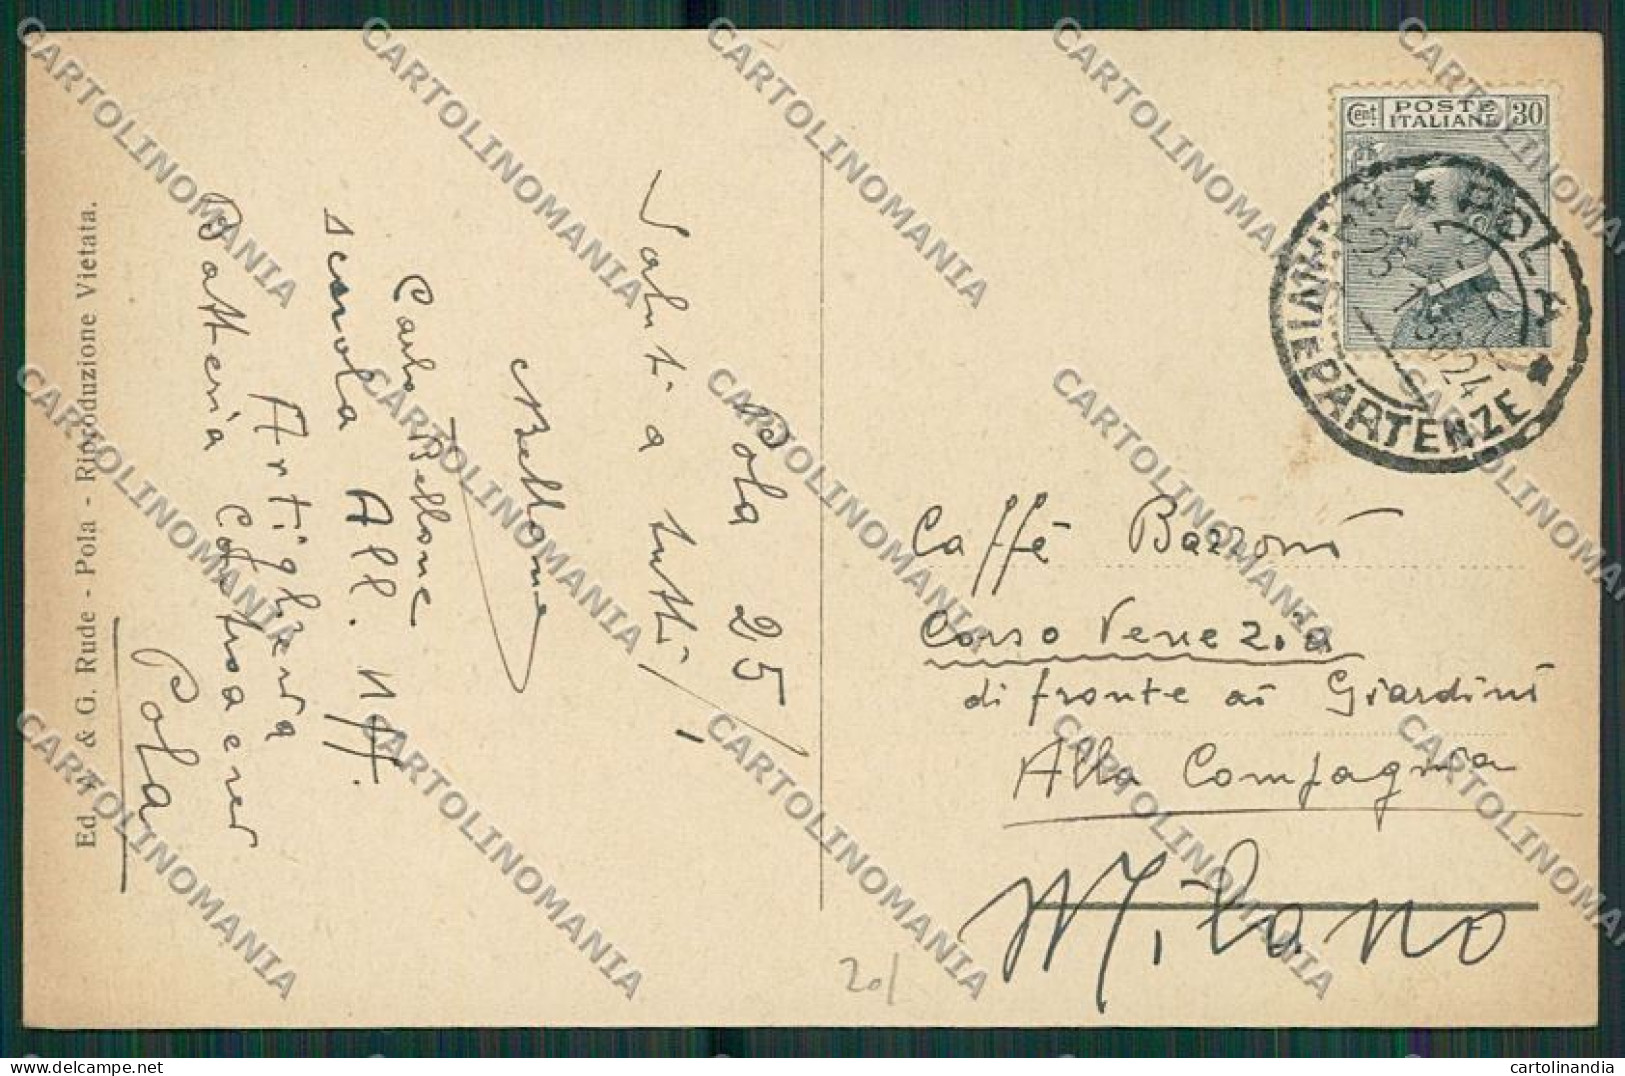 Pola 25
Saluti a tutti
Bellone
Carlo Bellone
scuola All. Uff.
Artiglieria
Batteria Contraerer
Pola
Ed. & G. Rude - Pola - Riproduzione Vietata.
Cent. POSTE ITALIANE 30
POLA
PARTENZE
24
Caffè Bazzoni
Corso Venezia
di fronte ai Giardini
Alla Compagnia
Milano
20/
CARTOLINOMANIA
cartolinandia